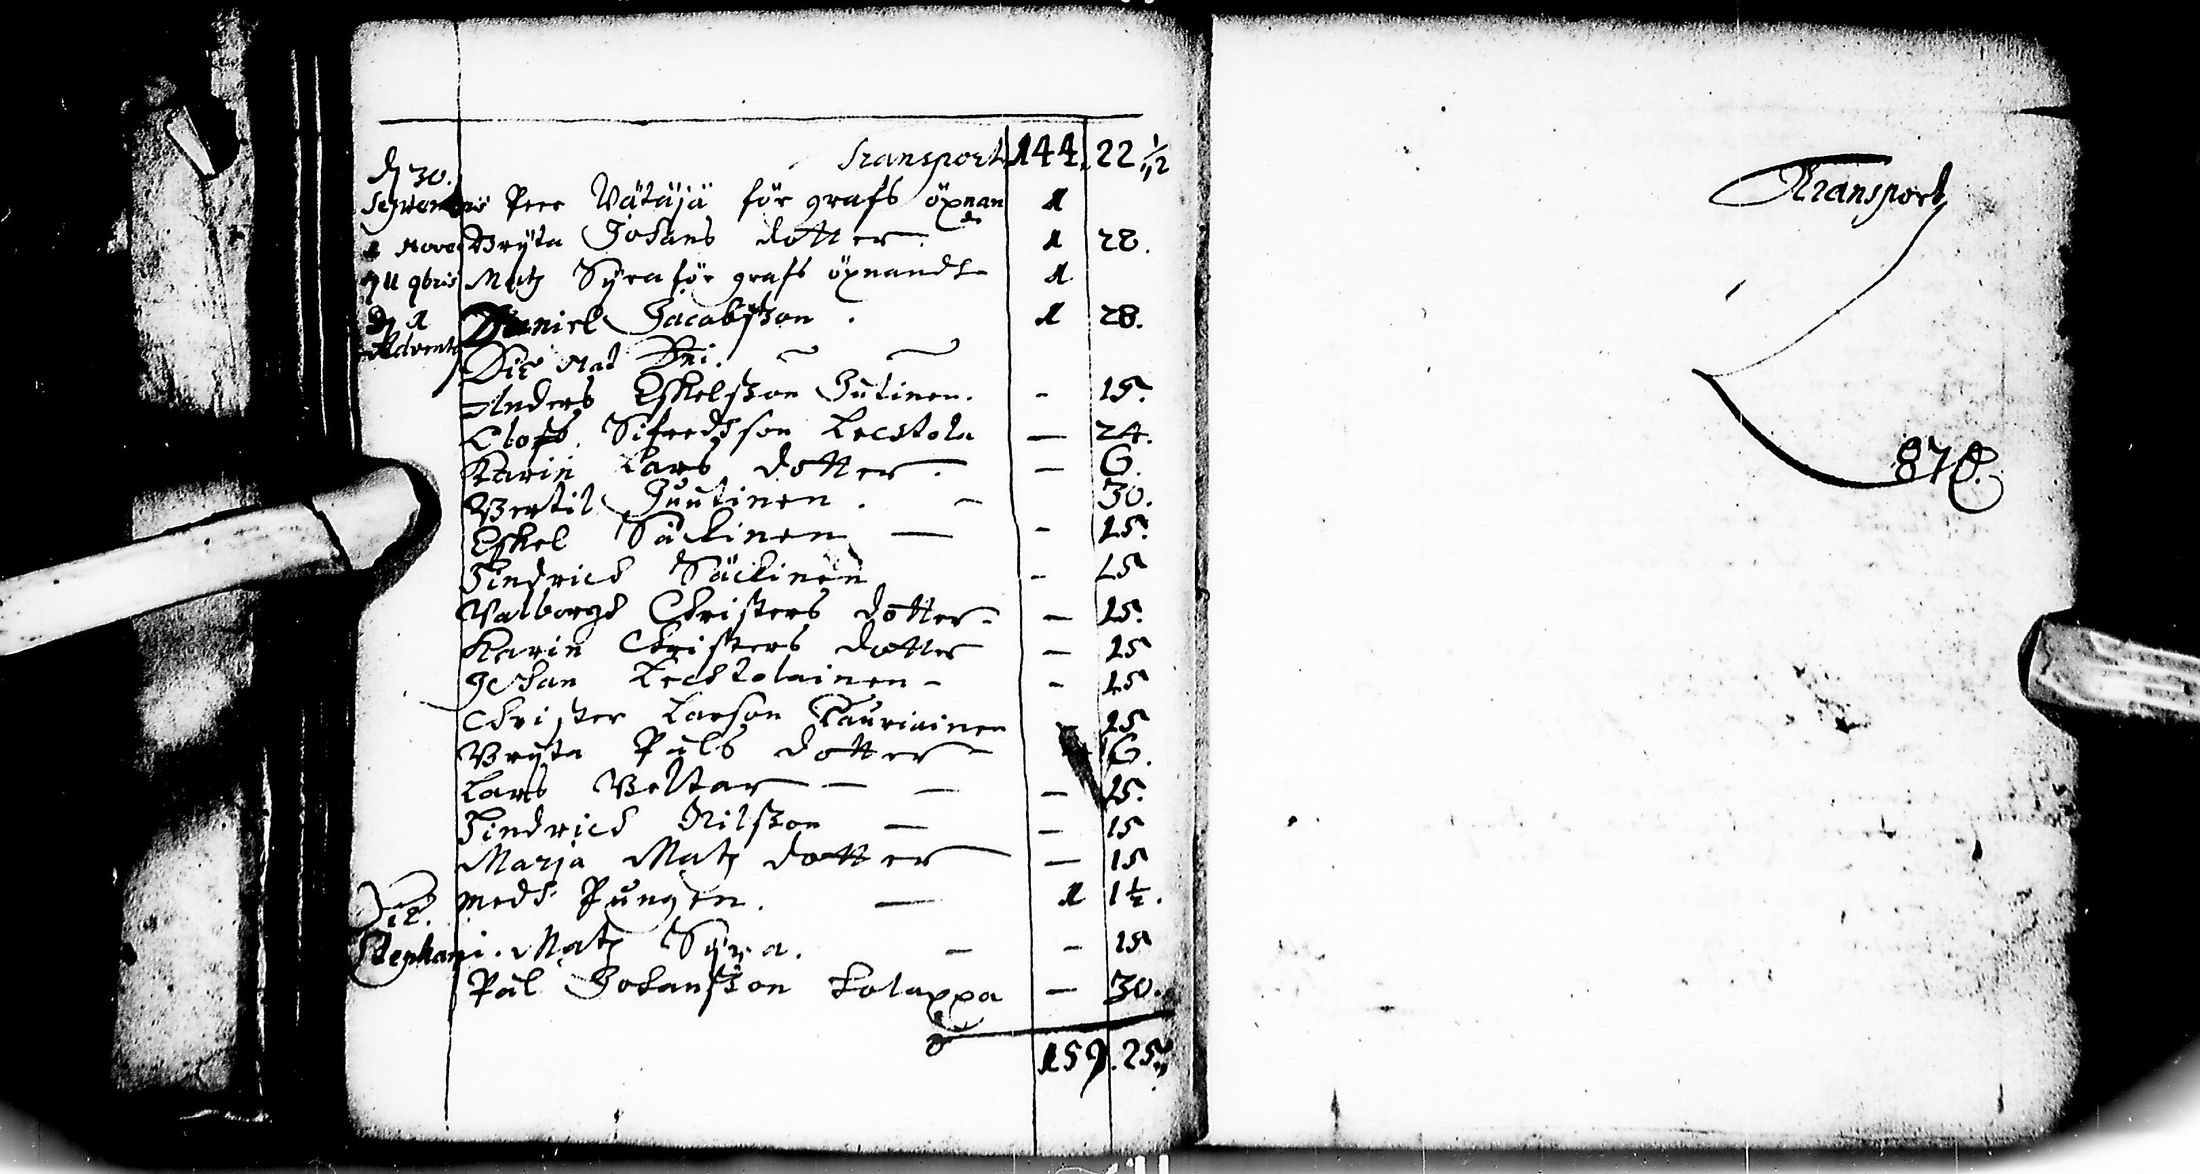 Transport 144. 22 1/12
dn 30.
Septembris Peer Wätäjä för grafs öpnan
de 1
1 Novo Bryta Johans dotter. 1 28.
dn 11 9bris Matz Syra för grafs öpnande 1
dn 1 Daniel Jacobsson . 1 28.
Advent
Die Nat Dni.
Anders Eskelsson Jutinen. - 15.
Oloff. Sifredsson Lechtola — 24.
Karin Lars dotter. — 6.
Bertil Juutinen. - 30.
Eskel Säckinen — - 15.
Hindrich Säckinen - 15
Walborgh Christers dotter - — 15.
Karin Christers dotter — 15
Johan Lechtolainen - - 15
Christer Larson Tauriainen 15
Bryta Påls dotter — 6.
Lars Weltar — — — 15.
Hindrich Nilsson — — 15
Marja Matz dotter — 15
medh Pungen. — 1 1½.
Die
Stephani. Matz Syra. — - 15
Pål Johansson Kolappa — 30.
159. 25
Transport
878.